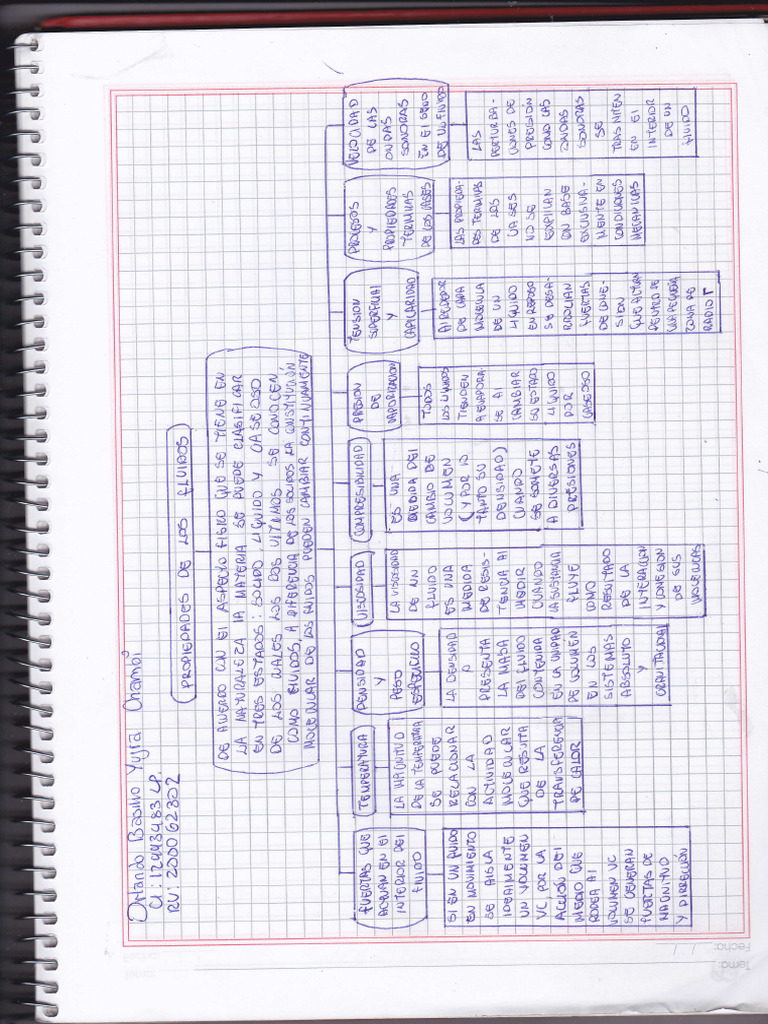 Orlando Basilio Yujra Chambi
CI: 12943483 LP.
RU: 200062302
PROPIEDADES DE LOS FLUIDOS
DE AWERDO CON El ASPECTO FISICO QUE SE TIENE EN
LA NATURALEZA lA MATERIA SE PUEDE CLASIFICAR
EN TRES ESTADOS: SOLIDO, LIQUIDO Y GASEOSO
DE LOS CUALES LOS DOS ULTIMOS SE CONOCEN
COMO FLUIDOS, A DIFERENCIA DE LOS SOLIDOS LA CONSTITUCIÓN
MOLECULAR DE LOS FLUIDOS PUEDEN CAMBIAR CONTINUAMENTE
FUERZAS QUE
ACTUAN EN El
INTERIOR DEl
FLUIDO
SI EN UN FLUIDO
EN MOVIMIENTO
SE AISLA
IDEALMENTE
UN VOLUMEN
VC, POR LA
ACCIÓN DEl
MEDIO QUE
RODEA Al
VOLUMEN VC
SE GENERAN
FUERZAS DE
MAGNITUD
Y DIRECCIÓN
TEMPERATURA
LA MAGNITUD
DE LA TEMPERATURA
SE PUEDE
RELACIONAR
CON LA
ACTIVIDAD
MOLECULAR
QUE RESULTA
DE LA
TRANSFERENCIA
DE CALOR
DENSIDAD
Y
PESO
ESPECIFICO
LA DENSIDAD
ρ
PRESENTA
LA MASA
DEl FLUIDO
CONTENIDA
EN LA UNIDAD
DE VOLUMEN
EN LOS
SISTEMAS
ABSOLUTO
Y
GRAVITACIONAl
VISCOSIDAD
LA VISCOSIDAD
DE UN
FLUIDO
ES UNA
MEDIDA
DE RESIS-
TENCIA Al
MEDIR
CUANDO
LA SUSTANCIA
FLUYE
COMO
RESULTADO
DE LA
INTERACION
Y COHESION
DE SUS
MOLECULAS
COMPRESIBILIDAD
ES UNA
MEDIDA DEl
CAMBIO DE
VOLUMEN
(Y POR lO
TANTO SU
DENSIDAD)
CUANDO
SE SOMETE
A DIVERSAS
PRESIONES
PRESION
DE
VAPORIZACION
TODOS
LOS LIQUIDOS
TIENDEN
A EVAPORA
SE Al
CAMBIAR
SU ESTADO
LIQUIDO
POR
GASEOSO
TENSION
SUPERFICIAl
Y
CAPILARIDAD
AlREDEDOR
DE CADA
MOLECULA
DE UN
LIQUIDO
EN REPOSO
SE DESA-
RROLLAN
FUERZAS
DE COHE-
SION
QUE ACTUAN
DENTRO DE
UNA PEQUEÑA
ZONA DE
RADIO r
PROCESOS
Y
PROPIEDADES
TERMICAS
DE LOS GASES
LAS PROPIEDA-
DES TERMICAS
DE LOS
GASES
NO SE
EXPLICAN
EN BASE
EXCLUSIVA-
MENTE EN
CONDICIONES
MECANICAS
VELOCIDAD
DE LAS
ONDAS
SONORAS
EN El SENO
DE UN FLUIDO
LAS
PERTURBA-
CIONES DE
PRESIÓN
COMO LAS
ONDAS
SONORAS
SE
TRASMITEN
EN El
INTERIOR
DE UN
FLUIDO
Tema:
Fecha: / /